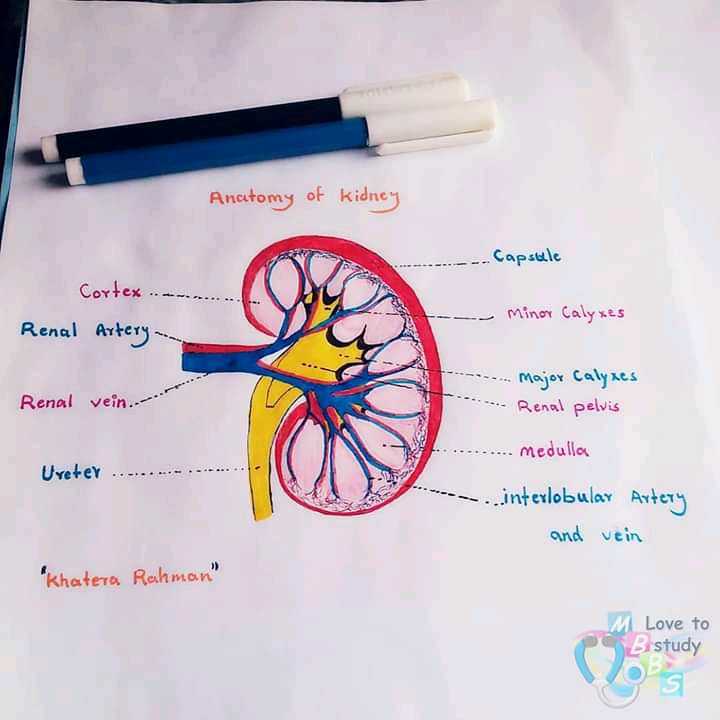 Anatomy of kidney
Capsule
Cortex
Minor Calyxes
Renal Artery
Major Calyxes
Renal vein
Renal pelvis
Medulla
Ureter
interlobular Artery
and vein
"Khatera Rahman"
M Love to
B study
B
S